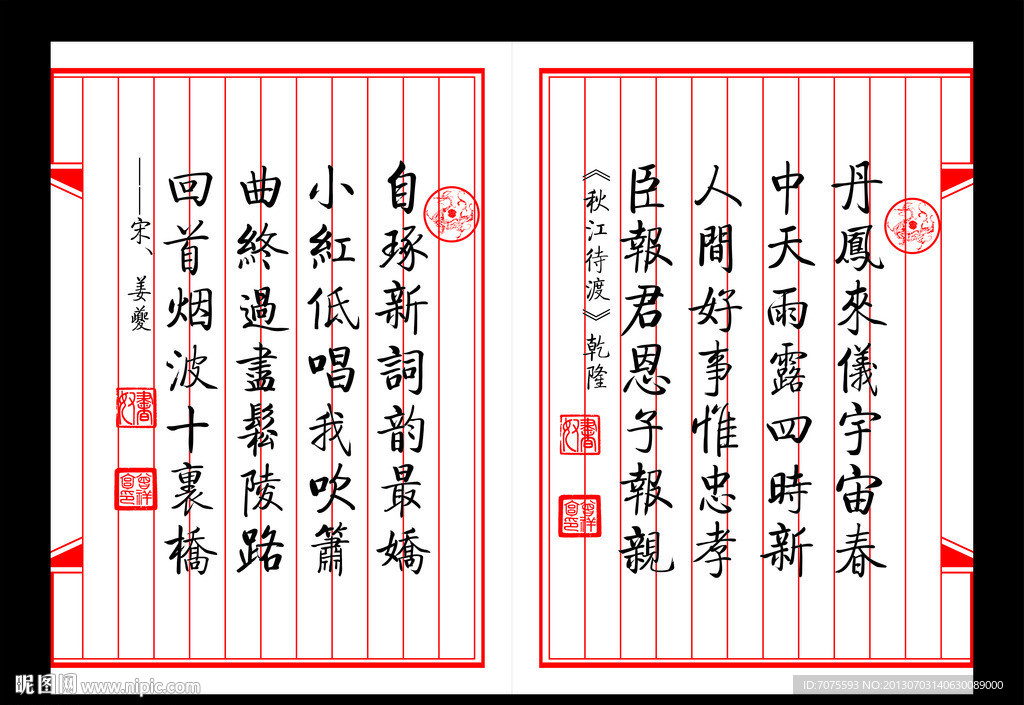 丹鳳來儀宇宙春
中天雨露四時新
人間好事惟忠孝
臣報君恩子報親
《秋江待渡》乾隆
自琢新詞韵最嬌
小紅低唱我吹簫
曲終過盡鬆陵路
回首烟波十裏橋
——宋、姜夔
昵图网 www.nipic.com
ID:7075593 NO:20130703140630089000